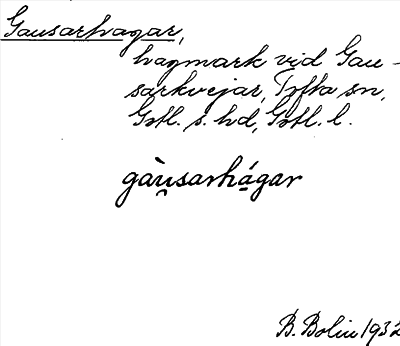 Gausarhagar,
hagmark vid Gau-
sarkvejar, Tofta sn,
Gotl. s. hd, Gotl. l.
gàu̯sarhágar
B. Bolin 1932